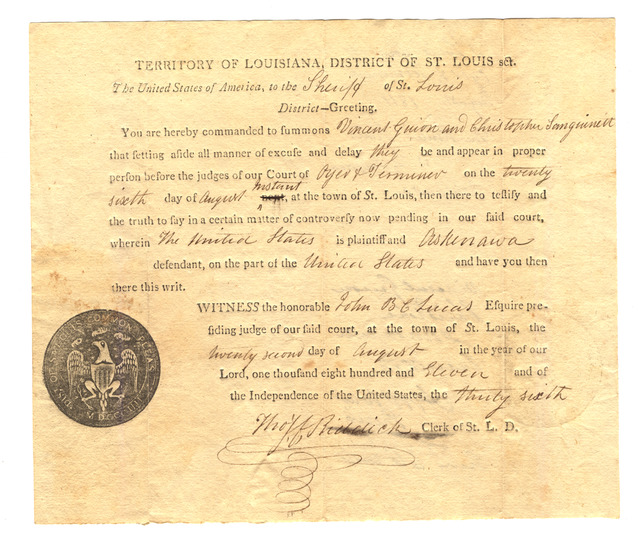 TERRITORY OF LOUISIANA, DISTRICT OF ST. LOUIS sct.
The United States of America, to the Sheriff of St. Louis
District—Greeting.
You are hereby commanded to summons Vincent Guion and Christopher Sanguinett
that ſetting aſide all manner of excuſe and delay they be and appear in proper
perſon before the judges of our Court of Oyer & Terminer on the twenty
sixth day of August instant next, at the town of St. Louis, then there to teſtify and
the truth to ſay in a certain matter of controverſy now pending in our ſaid court,
wherein The United States is plaintiff and Askeorawa
defendant, on the part of the United States and have you then
there this writ.
WITNESS the honorable John B C Lucas Eſquire pre-
ſiding judge of our ſaid court, at the town of St. Louis, the
twenty second day of August in the year of our
Lord, one thouſand eight hundred and Eleven and of
the Independence of the United States, the thirty sixth
Thos F Riddick Clerk of St. L. D.
COMMON PLEAS